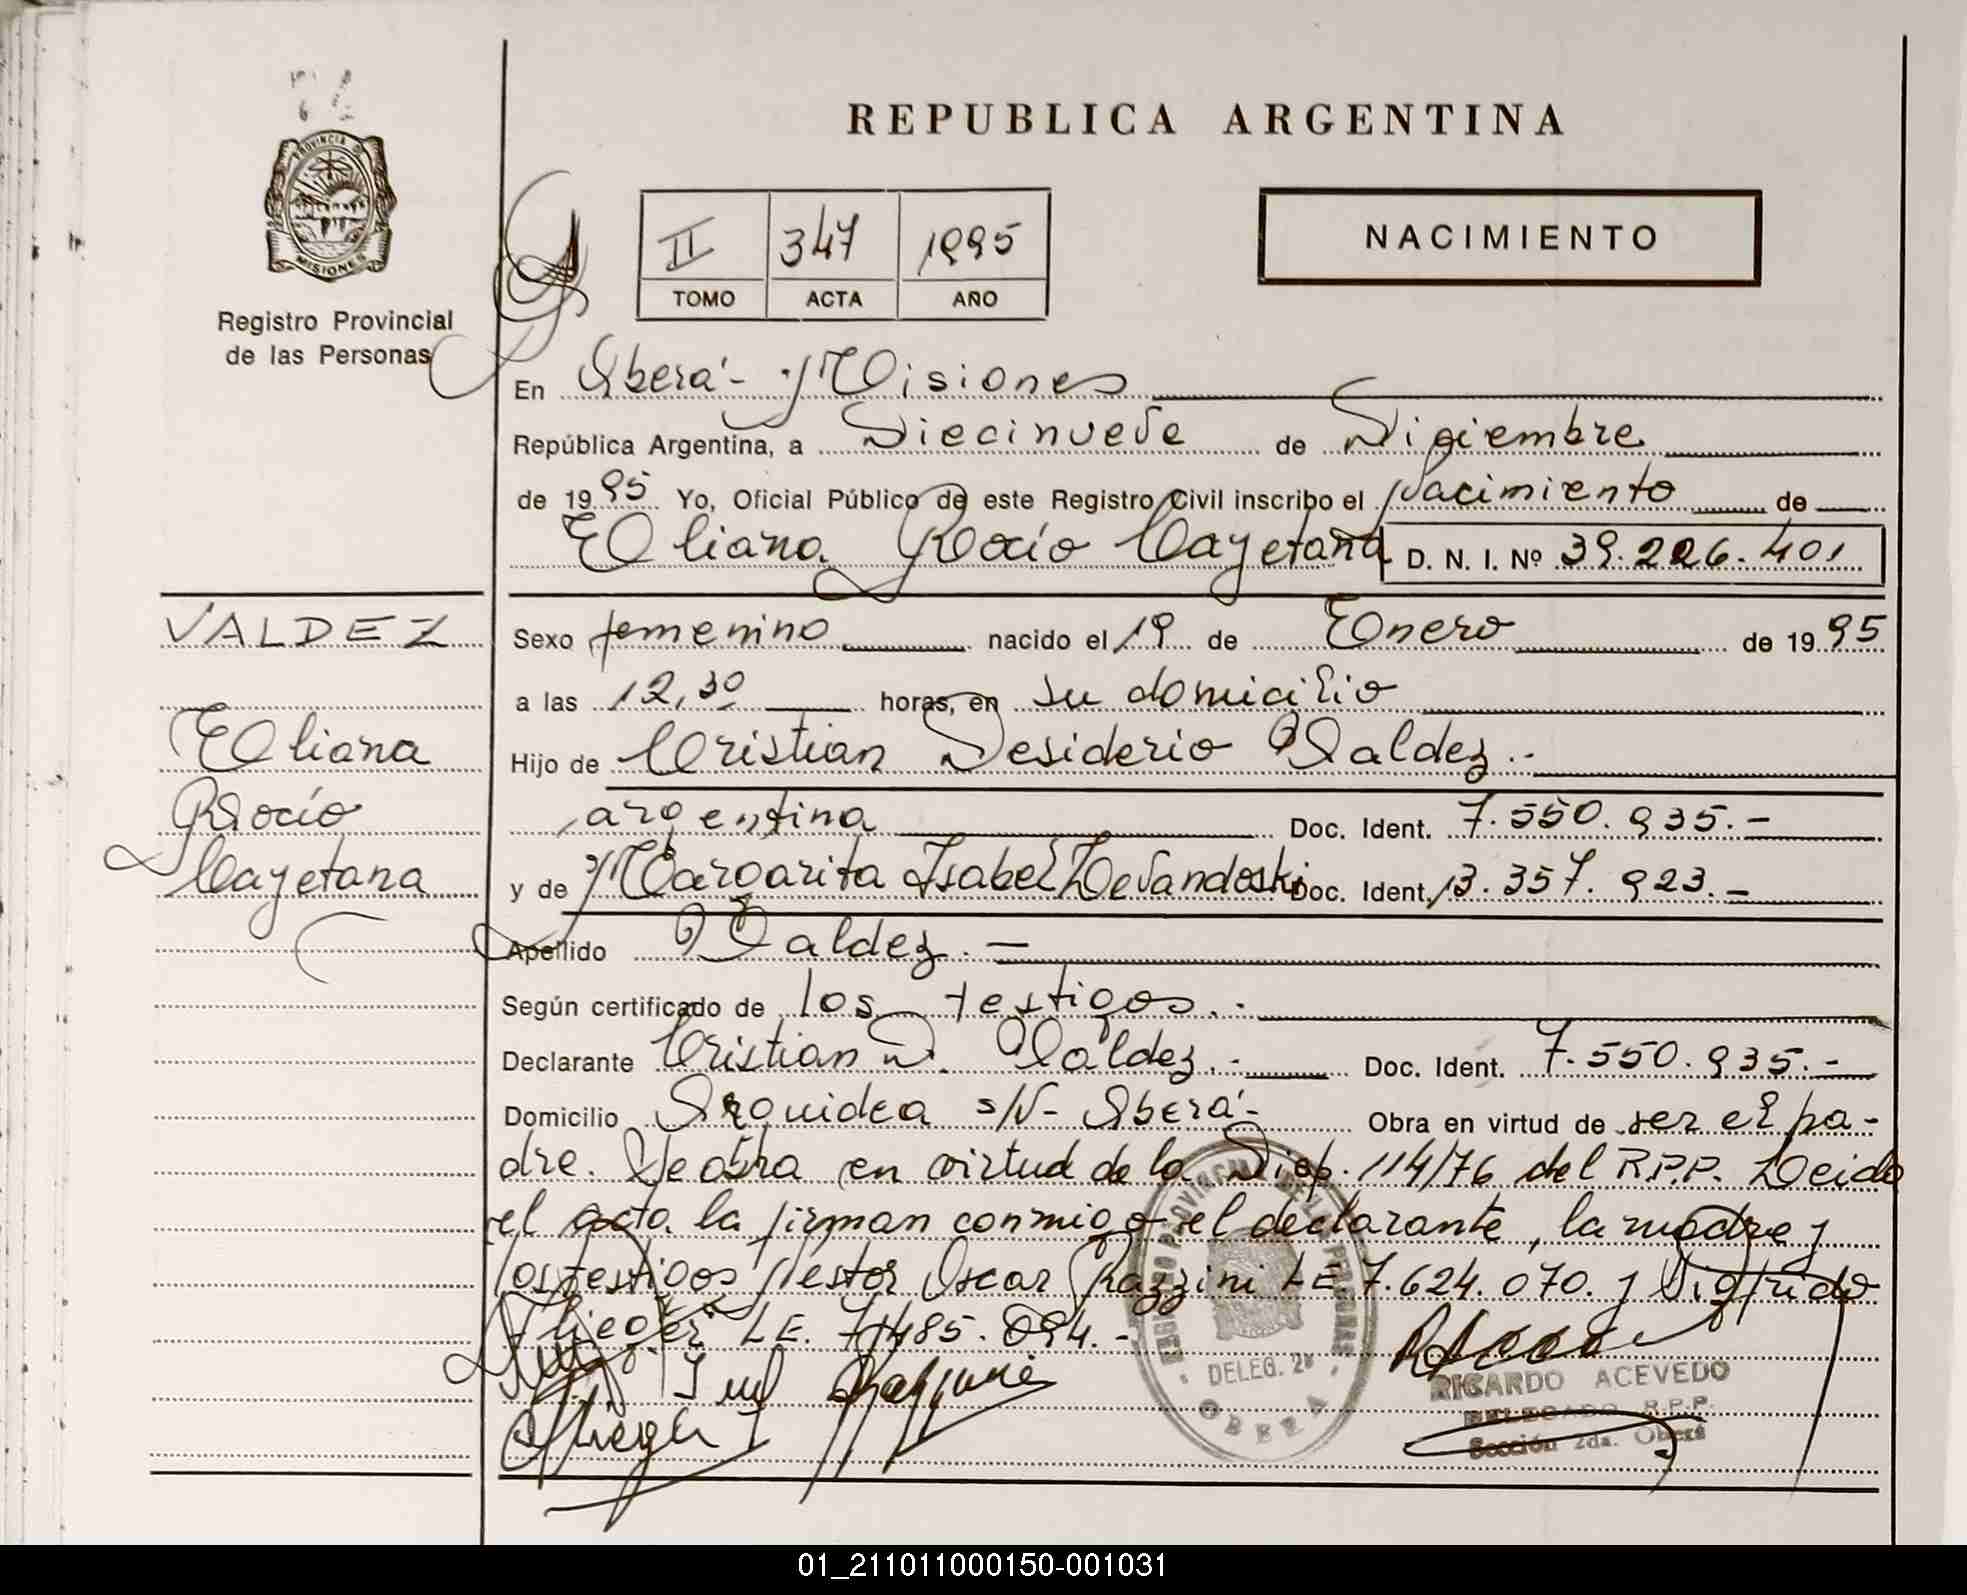 REPUBLICA ARGENTINA
PROVINCIA DE
MISIONES
Registro Provincial
de las Personas
II 347 1995
TOMO ACTA AÑO
NACIMIENTO
En Oberá - Misiones
República Argentina, a Diecinueve de Diciembre
de 1995 Yo, Oficial Público de este Registro Civil inscribo el Nacimiento de
Eliana Rocío Cayetana D. N. I. Nº 39.226.401
VALDEZ
Eliana
Rocío
Cayetana
Sexo femenino nacido el 19 de Enero de 1995
a las 12,30 horas, en su domicilio
Hijo de Cristian Desiderio Valdez.-
argentina Doc. Ident. 7.550.935.-
y de Margarita Isabel Doc. Ident. 13.357.923.-
Apellido Valdez.-
Según certificado de los testigos.-
Declarante Cristian D. Valdez.- Doc. Ident. 7.550.935.-
Domicilio Orquidea s/N- Oberá- Obra en virtud de ser el pa-
dre. Se obra en virtud de la Disp. 114/76 del R.P.P. Leida
el acta la firman conmigo el declarante, la madre y
los testigos Nestor Oscar Razzini LE 7.624.070. y Sigfrido
LE. 7.485.094.-
REGISTRO PROVINCIAL DE LAS PERSONAS
DELEG. 2ª
OBERA
RICARDO ACEVEDO
DELEGADO R.P.P.
Sección 2da. Oberá
01_211011000150-001031